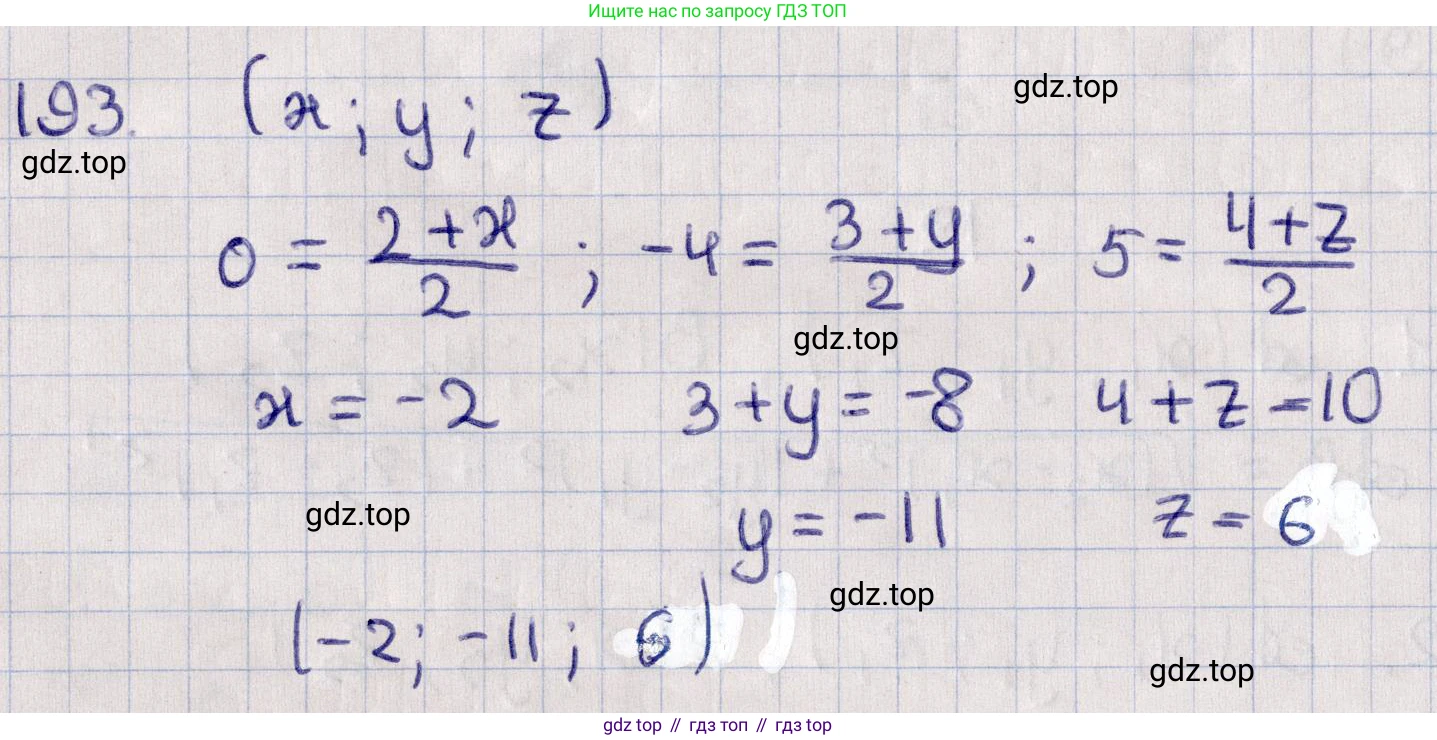 Ищите нас по запросу ГДЗ ТОП
193. (x; y; z)
gdz.top
gdz.top
0 = (2+x)/2 ; -4 = (3+y)/2 ; 5 = (4+z)/2
gdz.top
x = -2 3+y = -8 4+z = 10
gdz.top
y = -11 z = 6
gdz.top
(-2; -11; 6)
gdz.top
gdz top // гдз топ // gdz top